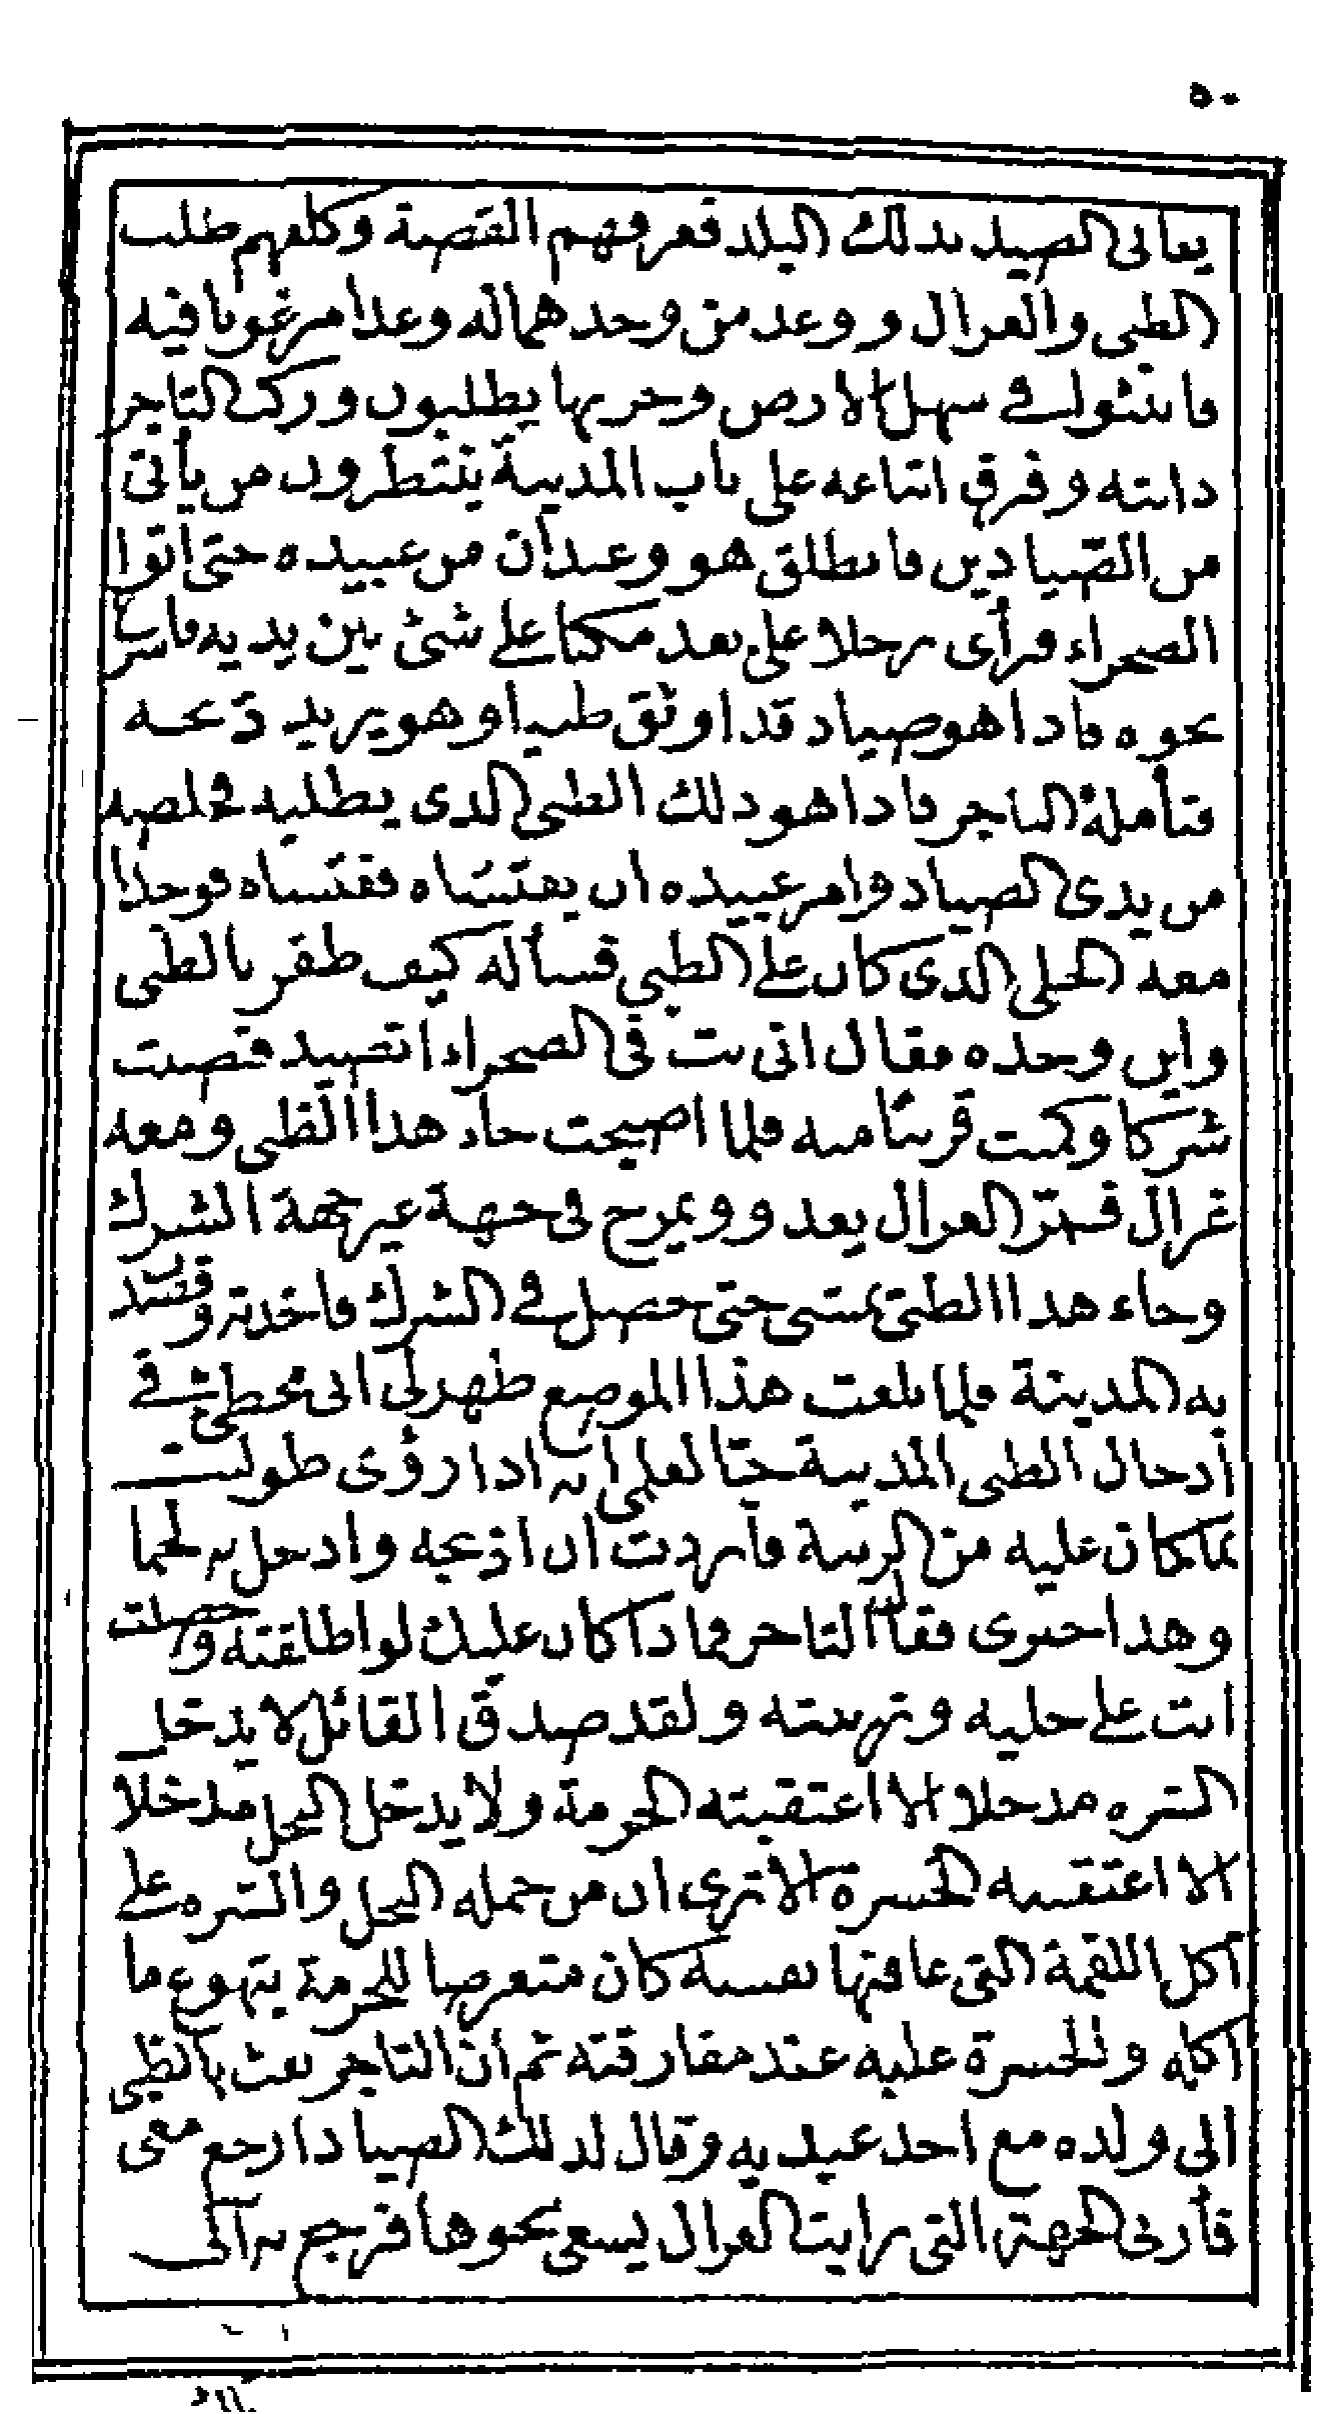 ٥٠
يعانى الصيد بذلك البلد فعرفهم القصة وكلفهم طلب
الظبى والغزال ووعد من وجدهما له وعدا مرغوبا فيه
فانبثوا فى سهل الارض وحزنها يطلبون وركب التاجر
دابته وفرق اتباعه على باب المدينة ينتظرون من يأتى
من الصيادين فانطلق هو وعبدان من عبيده حتى اتوا
الصحراء فرأى رجلا على بعد مكبا على شئ بين يديه فاسرع
نحوه فاذا هو صياد قد اوثق ظبيا وهو يريد ذبحه
فتأمله التاجر فاذا هو ذلك الظبى الذى يطلبه فخلصه
من يدى الصياد وامر عبيده ان يفتشاه ففتشاه فوجدا
معه الحلى الذى كان على الظبى فسأله كيف ظفر بالظبى
واين وجده فقال انى بت فى الصحراء اتصيد فنصبت
شركا وكمنت قريبا منه فلما اصبحت جاء هذا الظبى ومعه
غزال فمر الغزال يعدو ويمرح فى جهة غير جهة الشرك
وجاء هذا الظبى يمشى حتى حصل فى الشرك فاخذته وقصدت
به المدينة فلما بلغت هذا الموضع ظهر لى انى مخطئ فى
ادخال الظبى المدينة حيا لعلمى انه اذا رؤى طولبت
بما كان عليه من الزينة فأردت ان اذبحه وادخل به لحما
وهذا خبرى فقال التاجر فماذا كان عليك لو اطلقته وحصلت
انت على حليه وزينته ولقد صدق القائل لا يدخل
الشره مدخلا الا اعتقبته الحرمة ولا يدخل البخل مدخلا
الا اعتقبته الحسرة الا ترى ان من حمله البخل والشره على
اكل اللقمة التى عافتها نفسه كان متعرضا للحرمة يتهوع ما
اكله وللحسرة عليه عند مفارقته ثم ان التاجر بعث بالظبى
الى ولده مع احد عبديه وقال لذلك الصياد ارجع معى
فأرنى الجهة التى رايت الغزال يسعى نحوها فرجع به الى